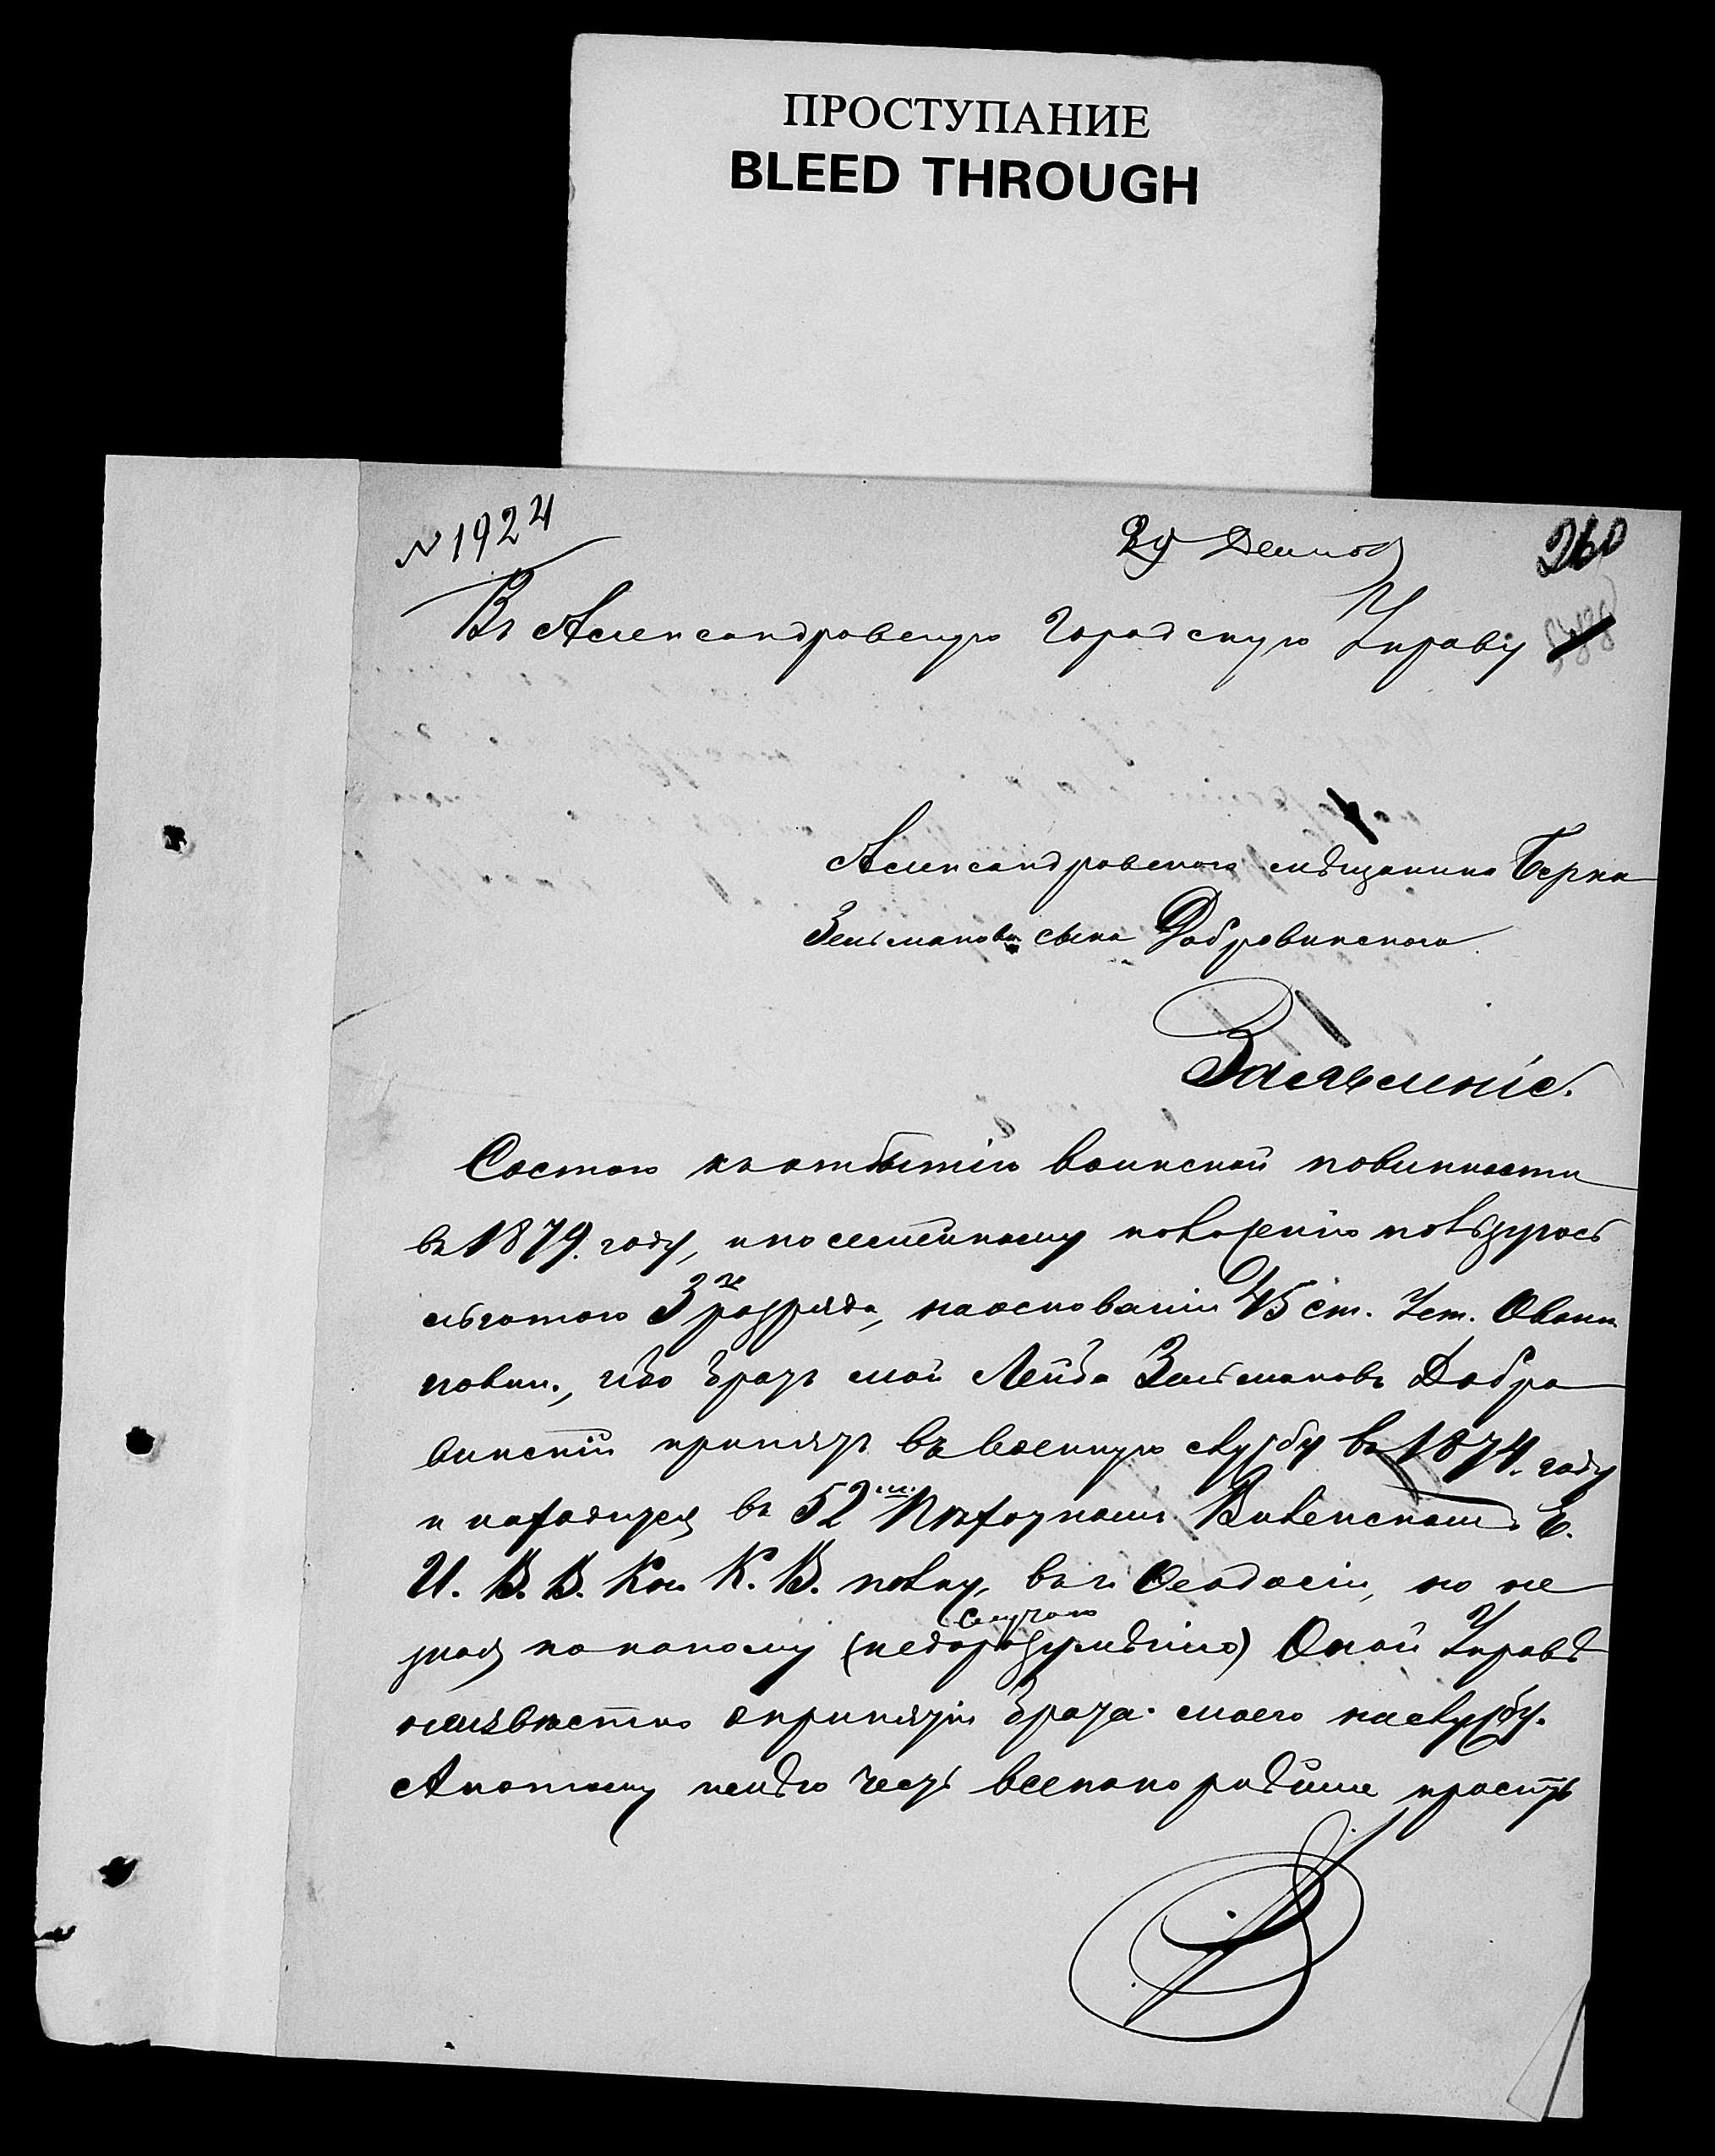 ПРОСТУПАНИЕ
BLEED THROUGH
№ 1924
260
Въ Александровскую Городскую Управу
Александровскаго мѣщанина Берка
Зельманова сына Добровинскаго
Заявленіе.
Состою къ отбытію воинской повинности
въ 1879. году, и по семейному положенію пользуюсь
льготою 3го разряда, на основаніи 45 ст. Уст. О воин.
повин., ибо братъ мой Лейба Зельмановъ Добро
винскій принятъ въ военную службу въ 1874. году
и находится въ 52мъ Пѣхотномъ Виленскомъ Е.
И. В. В. Кн. К. В. полку, въ г. Феодосіи, но не
зная по какому случаю (недоразумѣнію) Оной Управѣ
неизвѣстно о принятіи брата моего на службу.
А потому имѣю честь всепокорнѣйше просить